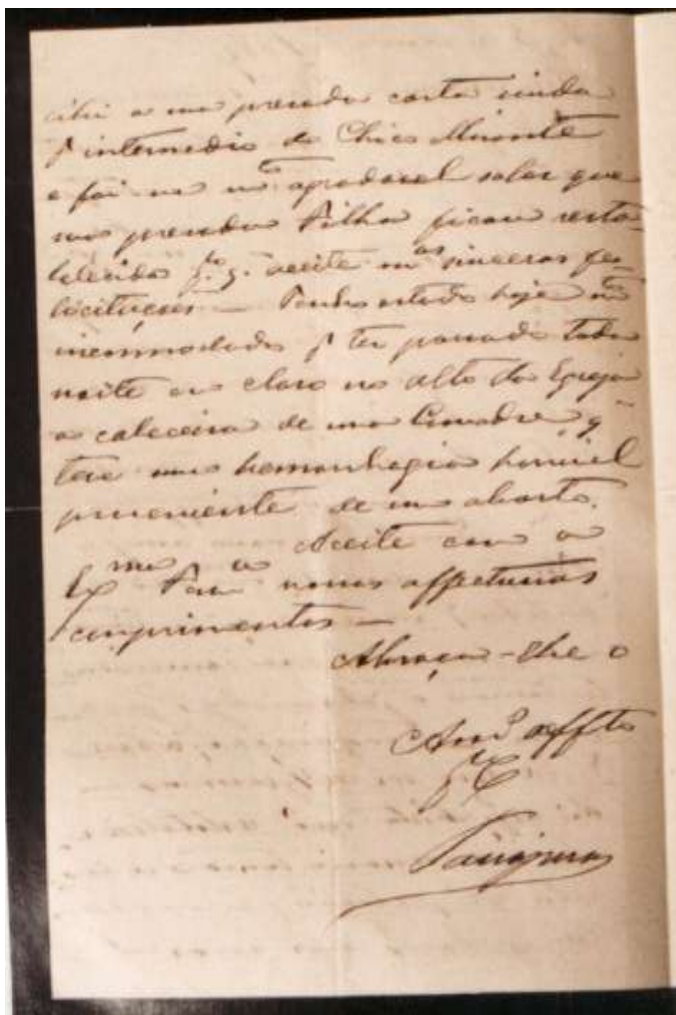 cebi a sua presada carta vinda
p intermedio do Chico Mirante
e foi me m.to agradavel saber que
sua presada Filha ficava resta-
belecida p.lo q. aceite m.as sinceras fe-
licitações — Tenho estado hoje m.to
incommodado p ter passado toda
noite em claro no alto da Egreja
a cabeceira de uma Comadre q
teve uma hemorrhagia horrivel
proveniente de um aborto.
Aceite com a
Ex.ma Fam.a nossos affectuosos
cumprimentos —
Abraça-lhe o
Am.o affto